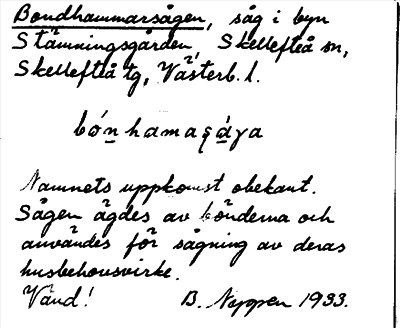 Bondhammarsågen, såg i byn
Stämningsgården, Skellefteå sn,
Skellefteå tg, Västerb. l.
bó́n̲hamaşá̲ya
Namnets uppkomst obekant.
Sågen ägdes av bönderna och
användes för sågning av deras
husbehovsvirke.
Vänd! B. Nygren 1933.